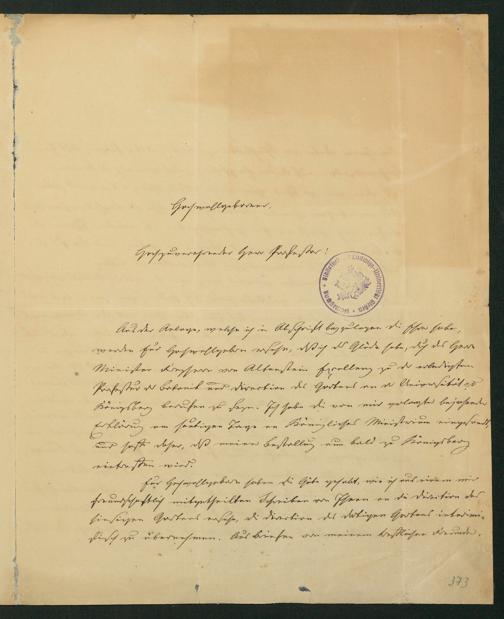 Hochwohlgeborner,
Hochzuverehrender Herr Professor!
Aus der Anlage, welche ich in Abschrift beyzulegen die Ehre habe,
werden Euer Hochwohlgeboren ersehn, daß ich das Glück habe, durch des Herrn
Minister Freyherr von Altenstein Excellenz zu der erledigten
Professur der Botanik und Direction des Gartens an der Universität zu
Königsberg berufen zu seyn. Ich habe die von mir verlangte bejahende
Erklärung am heutigen Tage an Königliches Ministerium eingesandt
und hoffe daher, daß meine Bestallung nun bald zu Königsberg
eintreffen wird.
Euer Hochwohlgeboren haben die Güte gehabt, wie ich aus einem mir
freundschaftlich mitgetheilten Schreiben von Ihnen an die Direction des
hiesigen Gartens ersehe, die Direction des dortigen Gartens interimi-
stisch zu übernehmen. Aus Briefen von meinem Freunde,
373